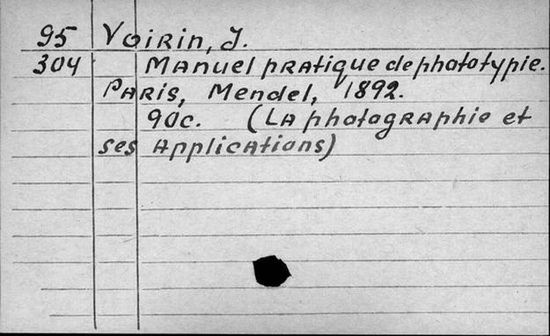 95 Voirin, J.
304 Manuel pratique de phototypie.
Paris, Mendel, 1892.
90c. (La photographie et
ses applications)